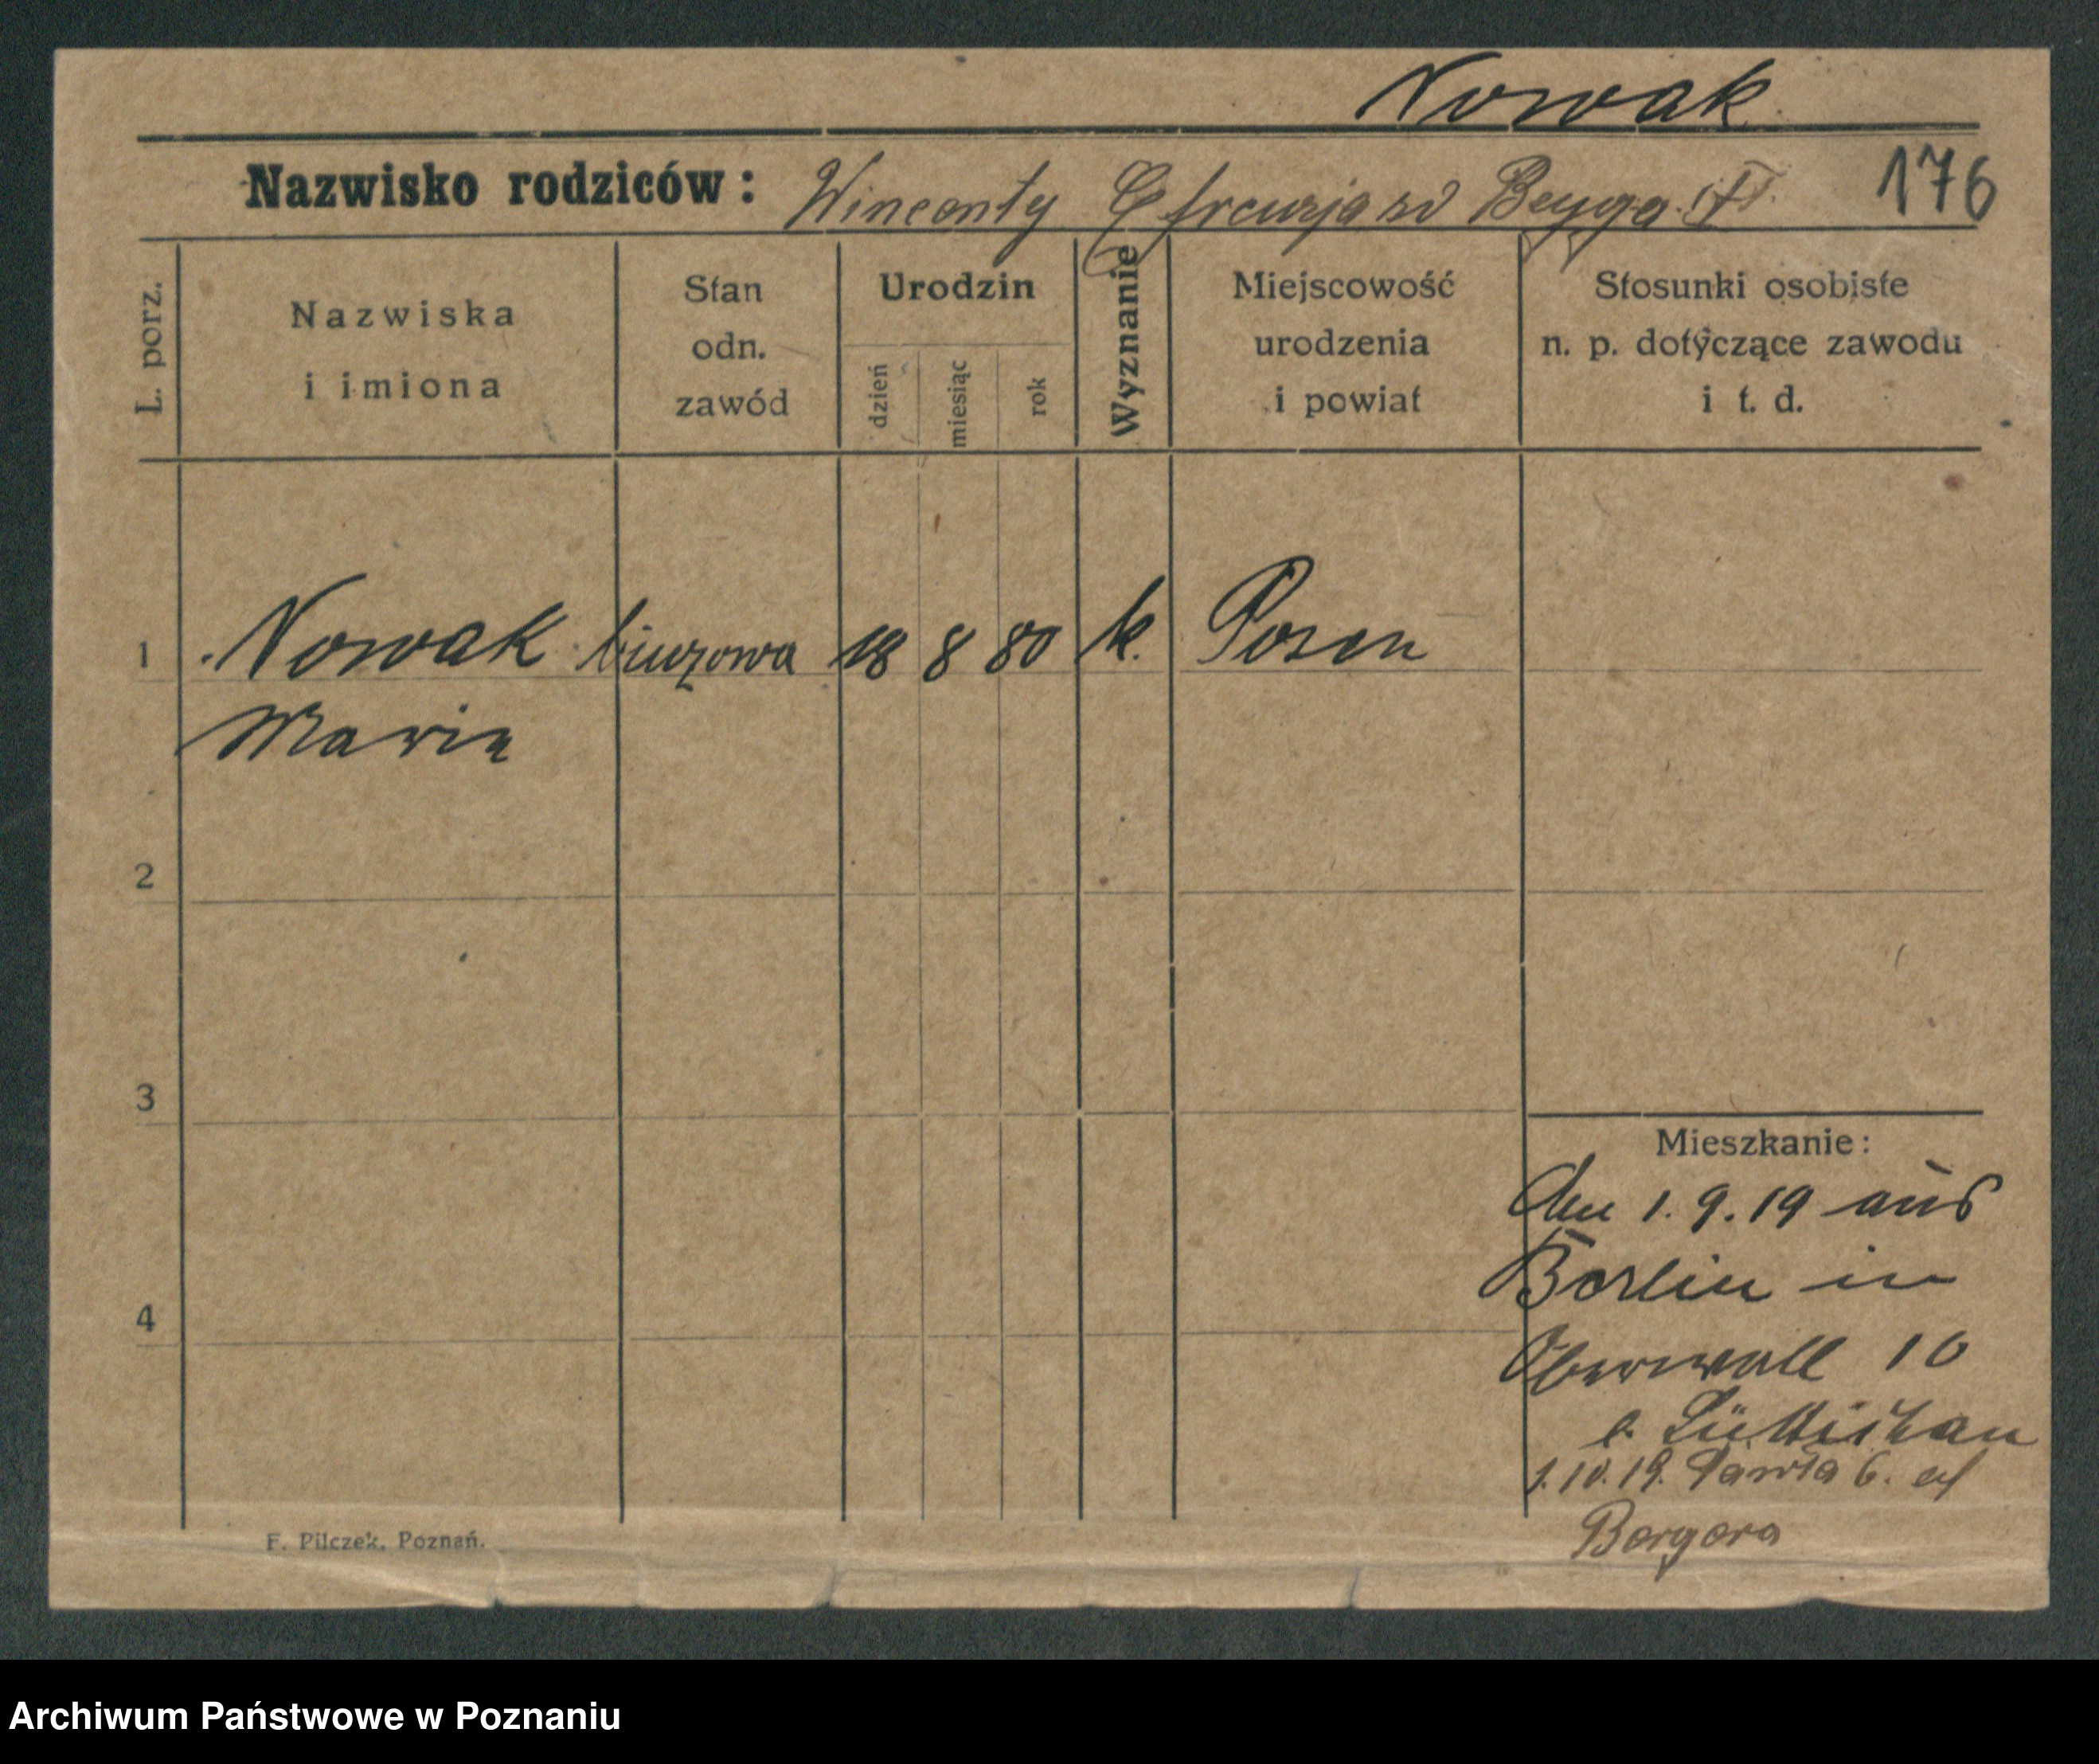 Nowak
Nazwisko rodziców: Wincenty 176
L. porz.
Nazwiska i imiona
Stan odn. zawód
Urodzin
dzień miesiąc rok
Wyznanie
Miejscowość urodzenia i powiat
Stosunki osobiste n. p. dotyczące zawodu i t. d.
1 Nowak biurowa 18 8 80 k. Posen
Maria
2
3
Mieszkanie:
1. 9. 19 aus
Berlin in
4
Oberwall 10
b. Lüttichau
1.10.19. Pawła 6.
F. Pilczek, Poznań.
Archiwum Państwowe w Poznaniu